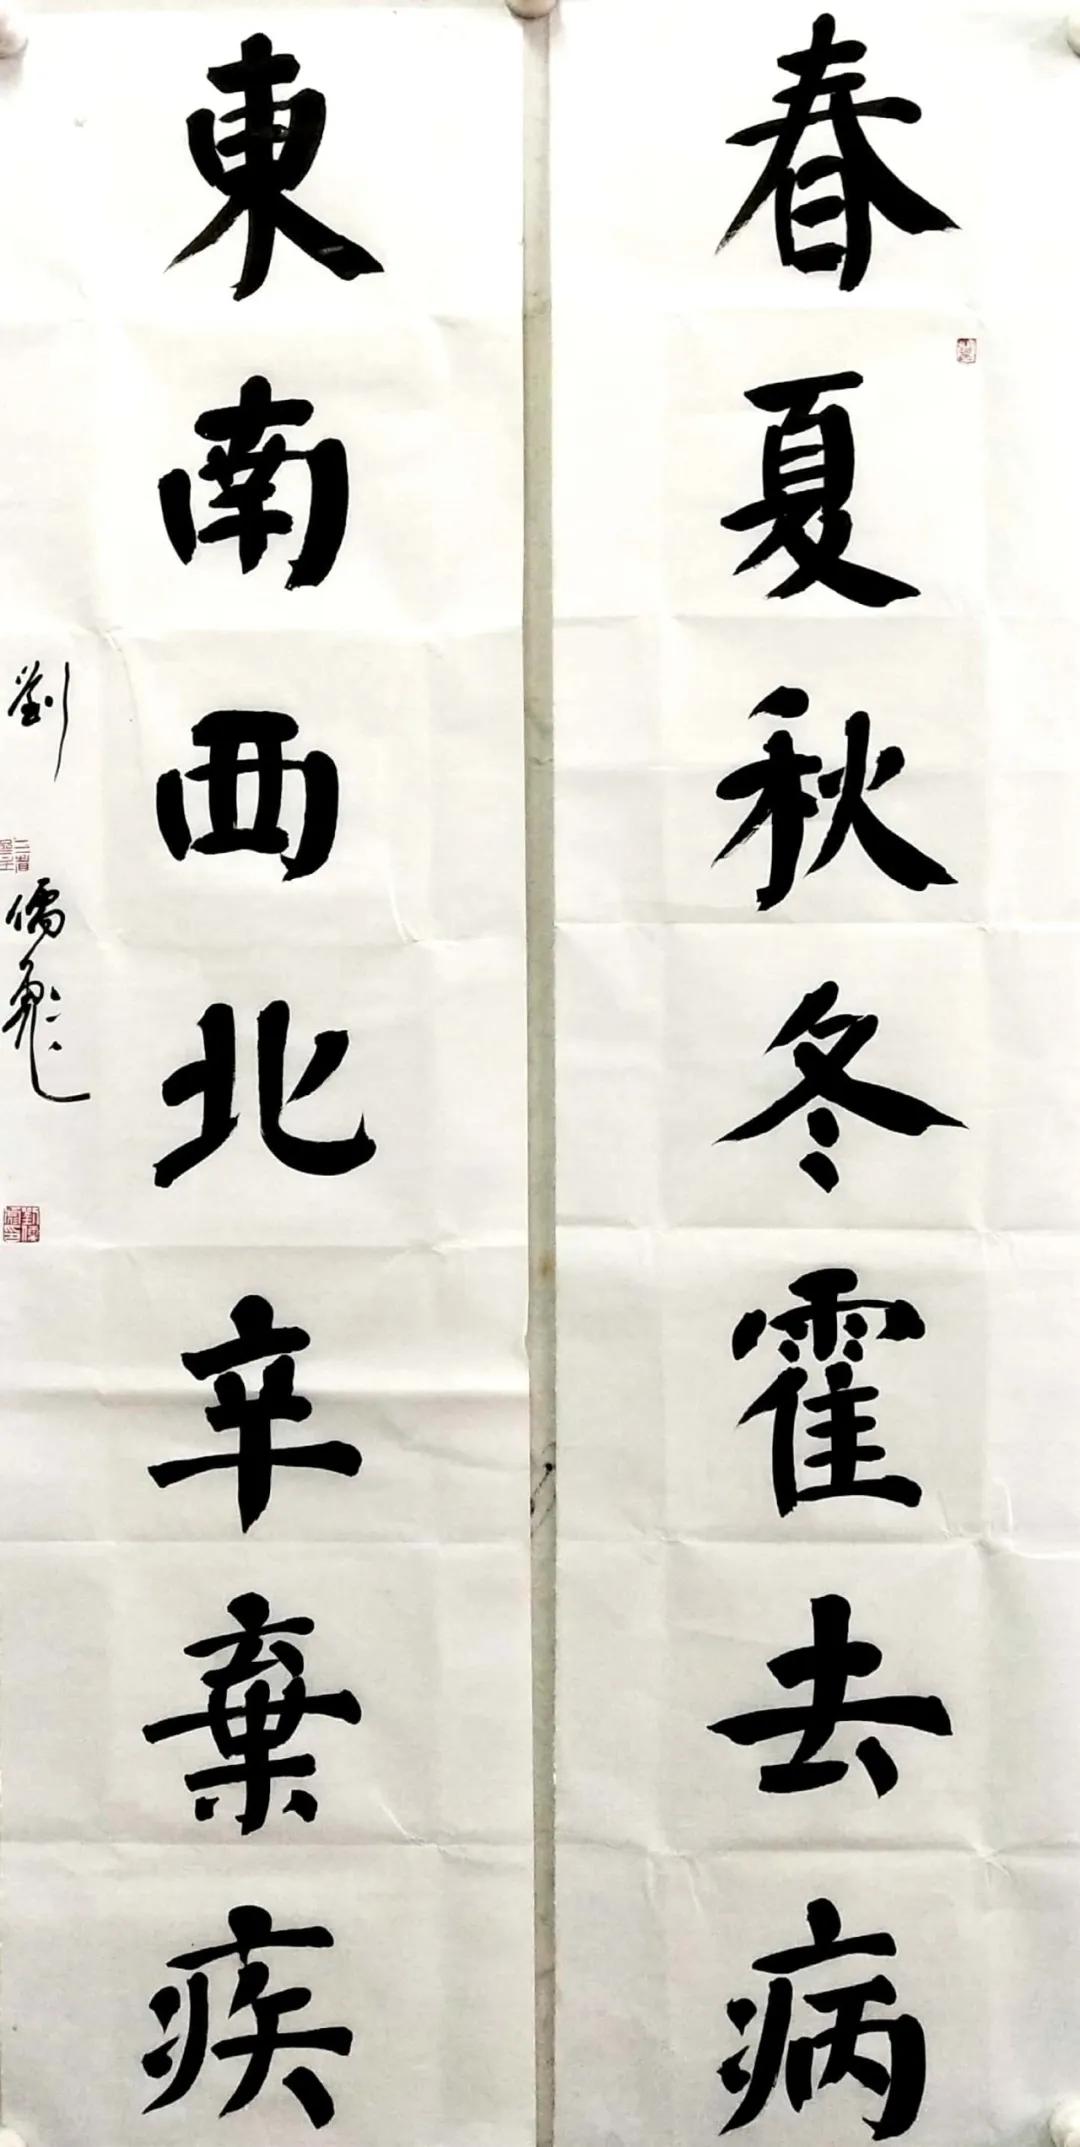 春夏秋冬霍去病
東南西北辛棄疾
劉儒